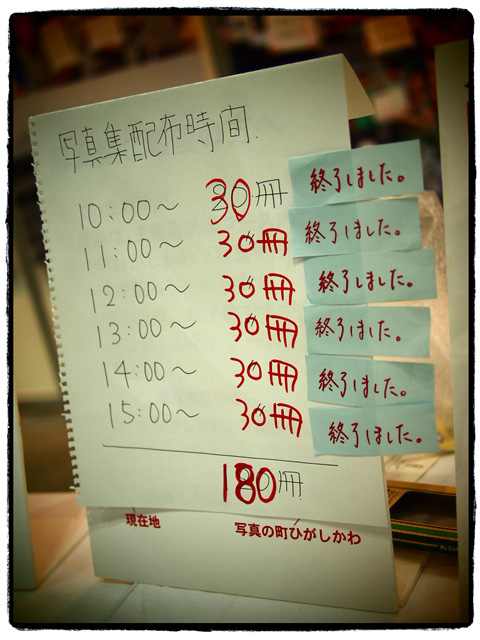 写真集配布時間.
10:00～ 30冊 終了しました。
11:00～ 30冊 終了しました。
12:00～ 30冊 終了しました。
13:00～ 30冊 終了しました。
14:00～ 30冊 終了しました。
15:00～ 30冊 終了しました。
180冊
現在地 写真の町ひがしかわ